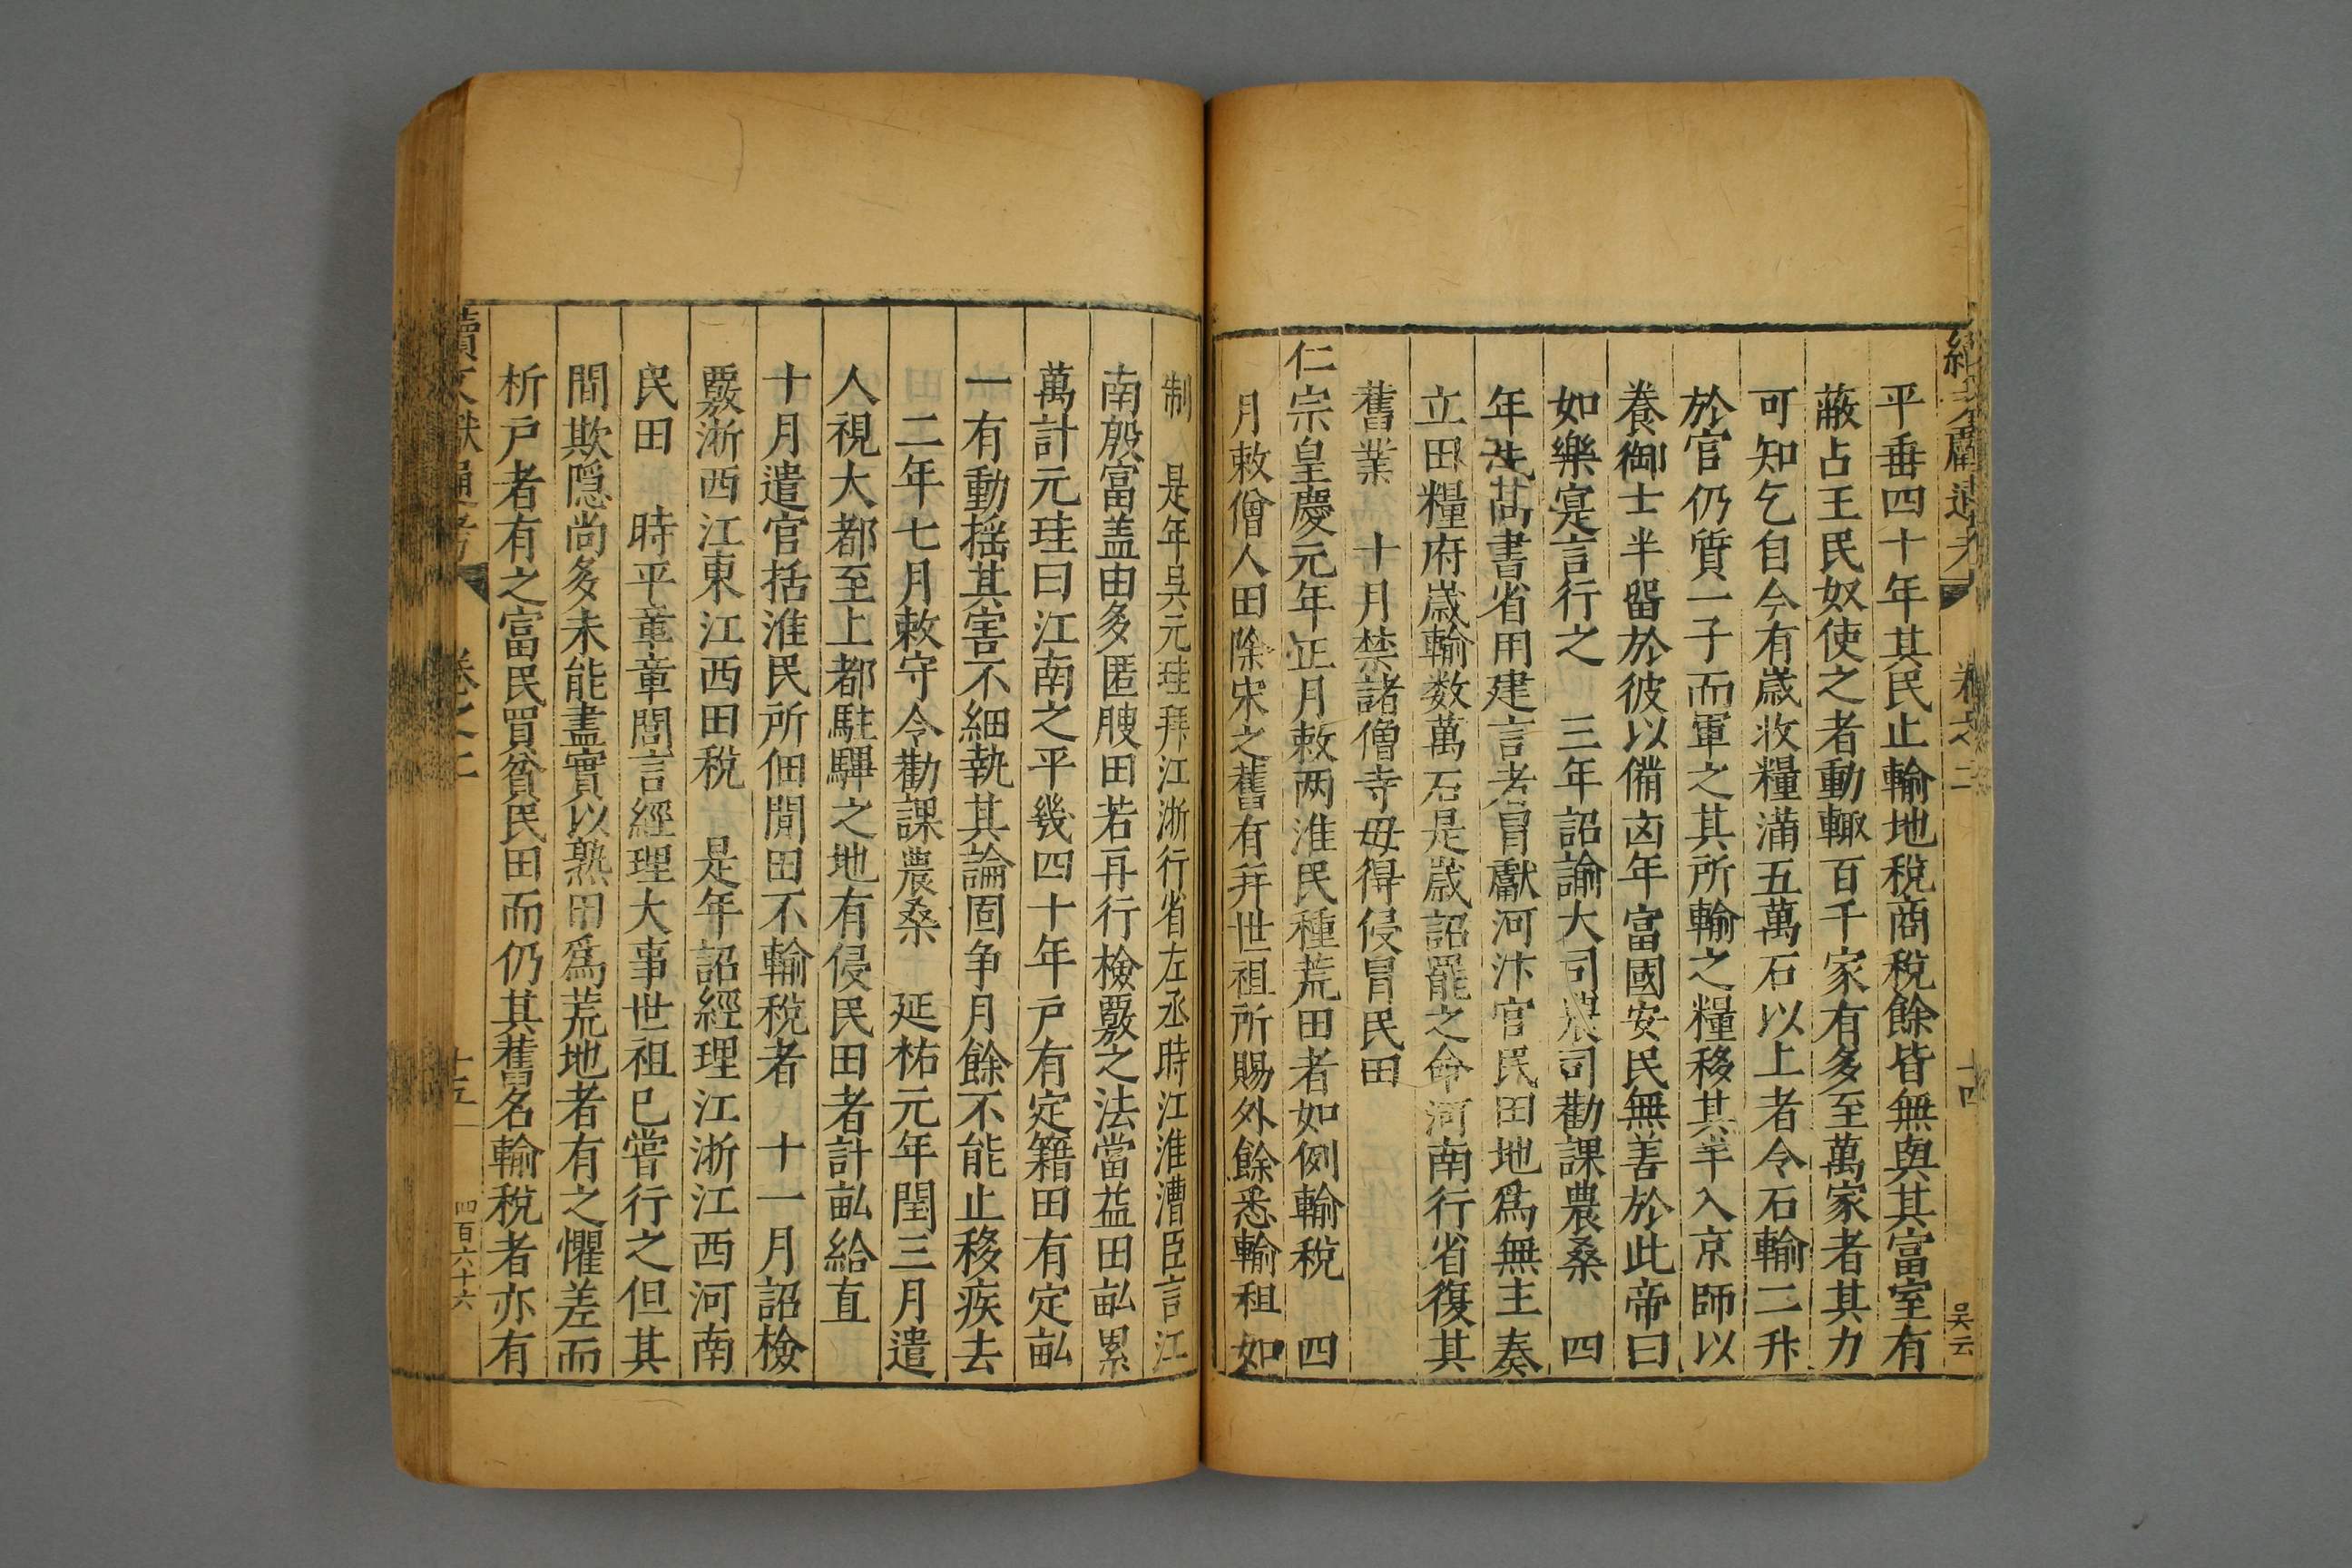 續文獻通考 卷之二 十四 吴云
平垂四十年其民止輸地稅商稅餘皆無與其富室有
蔽占王民奴使之者動輙百千家有多至萬家者其力
可知乞自今有歳收糧滿五萬石以上者令石輸二升
於官仍質一子而軍之其所輸之糧移其半入京師以
養御士半留於彼以備凶年富國安民無善於此帝曰
如樂寔言行之 三年詔諭大司農司勸課農桑 四
年先是尚書省用建言者冒獻河汴官民田地爲無主奏
立田糧府歳輸数萬石是歳詔罷之命河南行省復其
舊業 十月禁諸僧寺毋得侵冒民田
仁宗皇慶元年正月敕两淮民種荒田者如例輸稅 四
月敕僧人田除宋之舊有并世祖所賜外餘悉輸租如
制 是年吳元珪拜江浙行省左丞時江淮漕臣言江
南殷富盖由多匿腴田若再行檢覈之法當益田畝累
萬計元珪曰江南之平幾四十年戸有定籍田有定畝
一有動揺其害不細執其論固争月餘不能止移疾去
二年七月敕守令勸課農桑 延祐元年閏三月遣
人視大都至上都駐驆之地有侵民田者計畝給直
十月遣官括淮民所佃閒田不輸稅者 十一月詔檢
覈浙西江東江西田稅 是年詔經理江浙江西河南
民田 時平章章閭言經理大事世祖已嘗行之但其
間欺隱尚多未能盡實以熟田爲荒地者有之懼差而
析戸者有之富民買貧民田而仍其舊名輸稅者亦有
續文獻通考 卷之二 十五 四百六十六